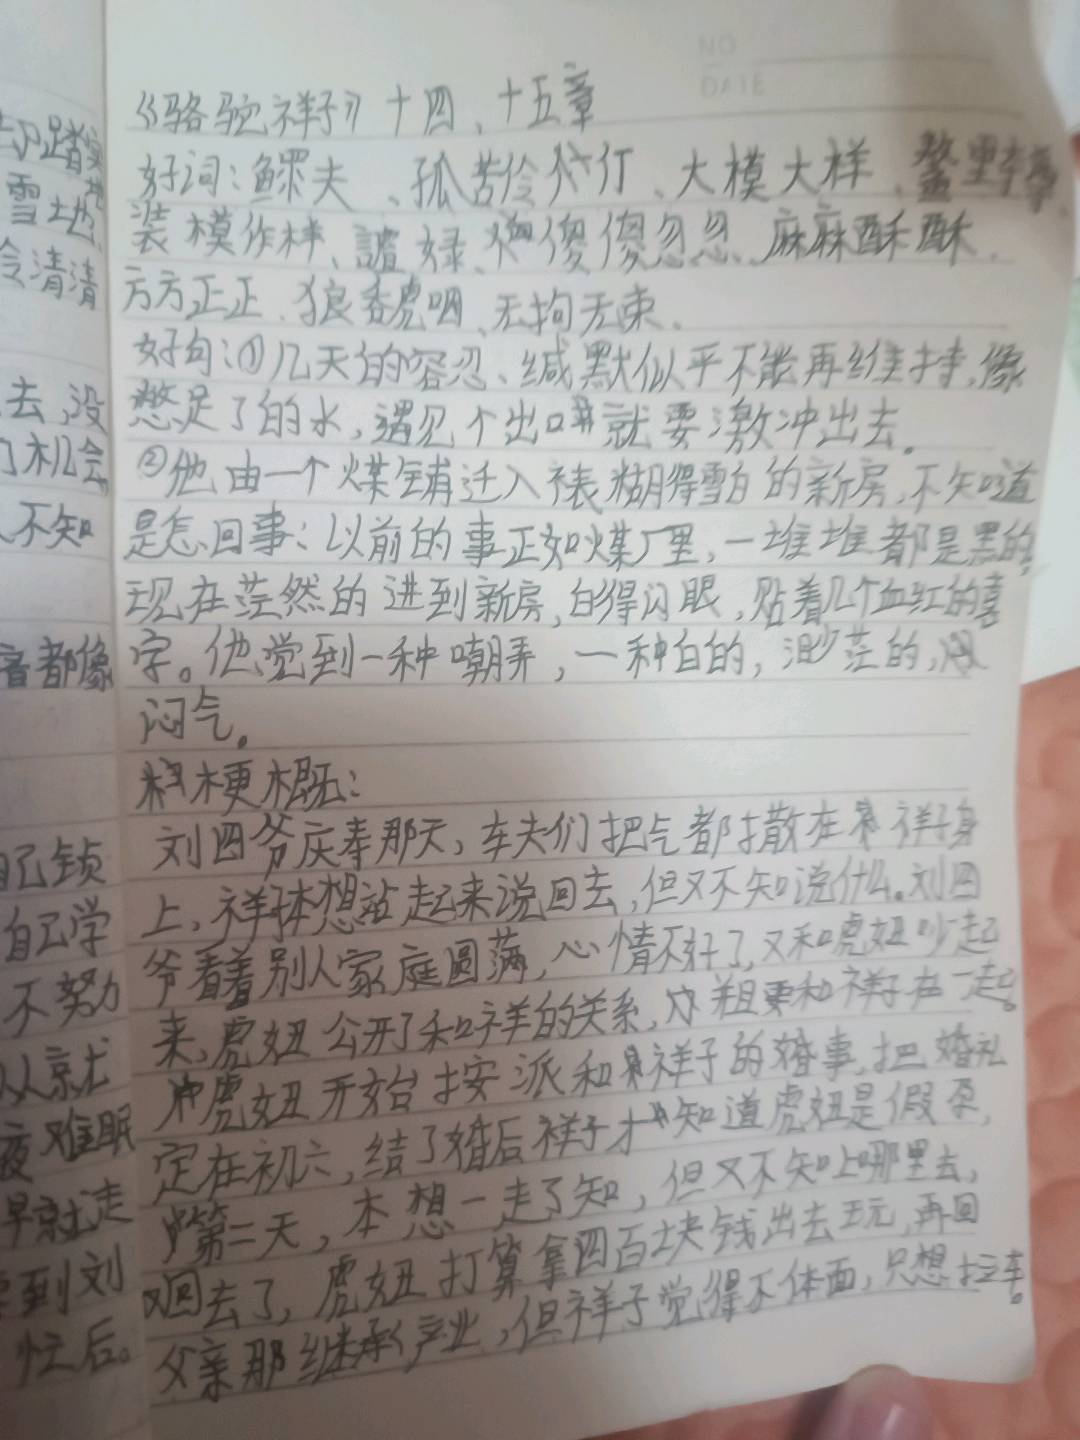 NO
DATE
《骆驼祥子》十四、十五章
好词：鳏夫、孤苦伶仃、大模大样、
装模作样、谴、傻傻忽忽、麻麻酥酥、
方方正正、狼吞虎咽、无拘无束、
好句：①几天的容忍、缄默似乎不能再维持，像
憋足了的水，遇见个出口就要激冲出去。
②他由一个煤铺迁入裱糊得雪白的新房，不知道
是怎回事：以前的事正如煤厂里，一堆堆都是黑的，
现在茫然的进到新房，白得闪眼，贴着几个血红的喜
字。他觉到一种嘲弄，一种白的，渺茫的，
闷气。
梗概：
刘四爷庆寿那天，车夫们把气都撒在祥子身
上，祥子本想站起来说回去，但又不知说什么。刘四
爷看着别人家庭圆满，心情不好了，又和虎妞吵起
来，虎妞公开了和祥的关系，并要和祥子在一起。
虎妞开始按派和祥子的婚事，把婚礼
定在初六，结了婚后祥子才知道虎妞是假孕，
第二天，本想一走了知，但又不知上哪里去，
又回去了，虎妞打算拿四百块钱出去玩，再回
父亲那继承产业，但祥子觉得不体面，只想拉车。
踏实
雪地、
冷清清
去，没
机会
不知
都像
自己锁
自己学
不努力
夜难眠
早就走
到刘
忙后。